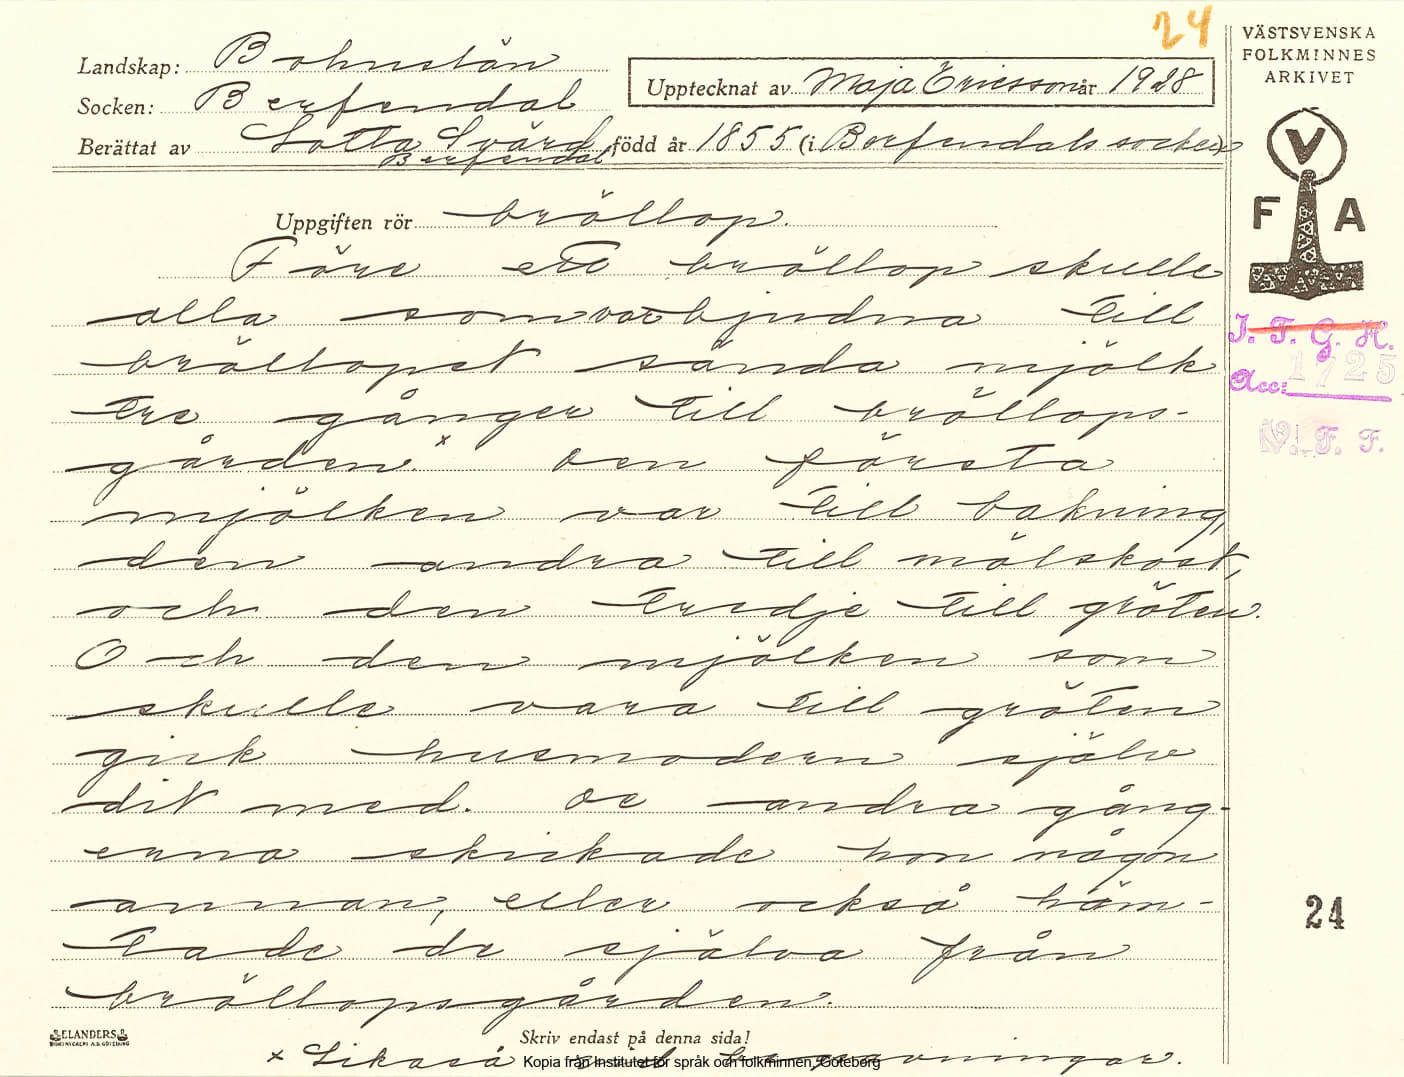 24
VÄSTSVENSKA
FOLKMINNES
ARKIVET
Landskap: Bohuslän
Socken: Berfendal
Upptecknat av Maja Ericsson år 1928
Berättat av Lotta Svärd, född år 1855 (i Berfendals socken)
Berfendal
V
F A
Uppgiften rör bröllop.
Före ett bröllop skulle
alla som var bjudna till
bröllopet sända mjölk
tre gånger till bröllops-
gården.x Den första
mjölken var till bakning,
den andra till mölskost,
och den tredje till gröten.
Och den mjölken som
skulle vara till gröten
gick husmodern själv
dit med. De andra gång-
erna skickade hon någon
annan, eller också häm-
tade de själva från
bröllopsgården.
I. F. G. H.
Acc: 1725
V. F. F.
24
ELANDERS
BOKTRYCKERI A.B. GÖTEBORG
Skriv endast på denna sida!
x Likaså vid begravningar.
Kopia från Institutet för språk och folkminnen, Göteborg